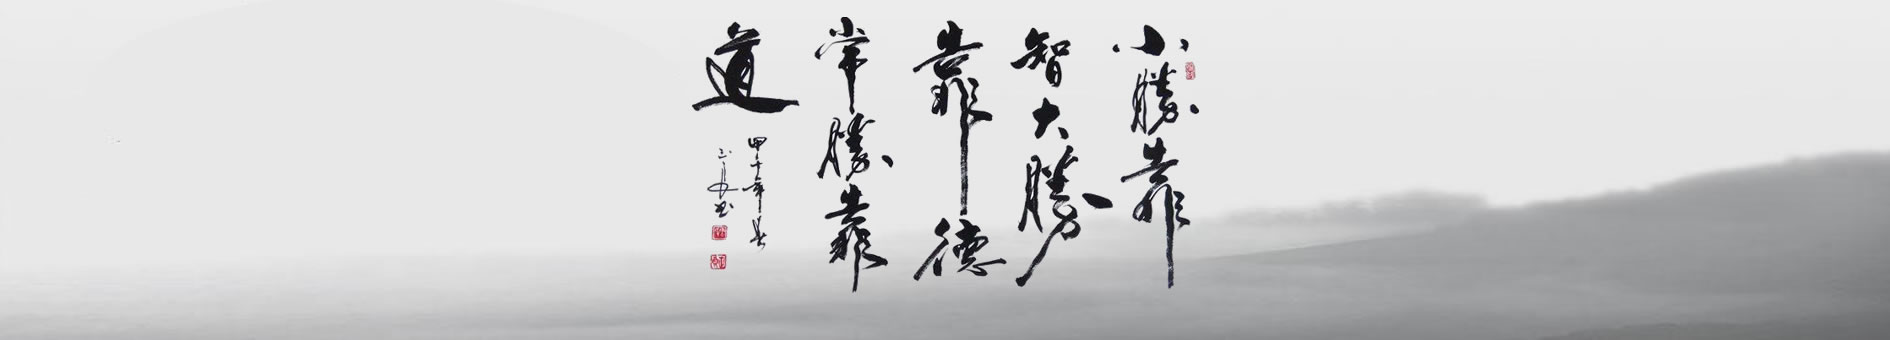 小勝靠
智大勝
靠德
常勝靠
道
甲午年春